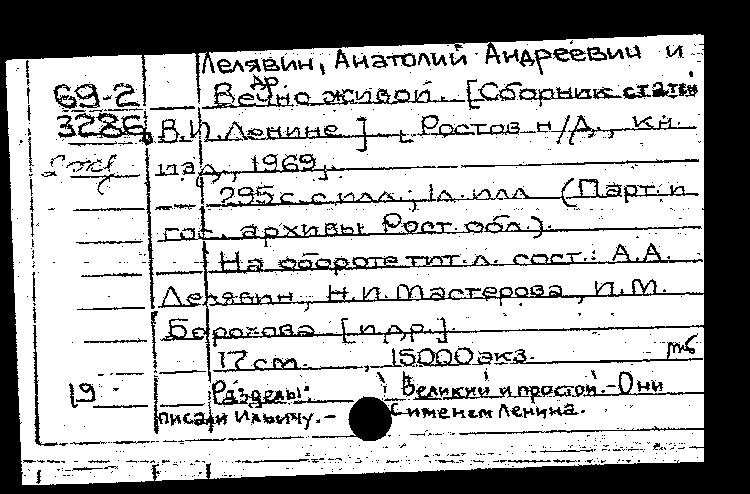 Лелявин, Анатолий Андреевич и
др
69-2 Вечно живой. [Сборник статей
3286 о В.И. Ленине]. Ростов н/Д., Кн.
изд., 1969.
295 с. с илл.; 1 л. илл. (Парт. и
гос. архивы Рост. обл.).
На обороте тит. л. сост.: А.А.
Лелявин, Н.И. Мастерова, И.М.
Борохова [и др.].
17 см. , 15000 экз. тб
19 Разделы: Великий и простой.- Они
писали Ильичу.- С именем Ленина.